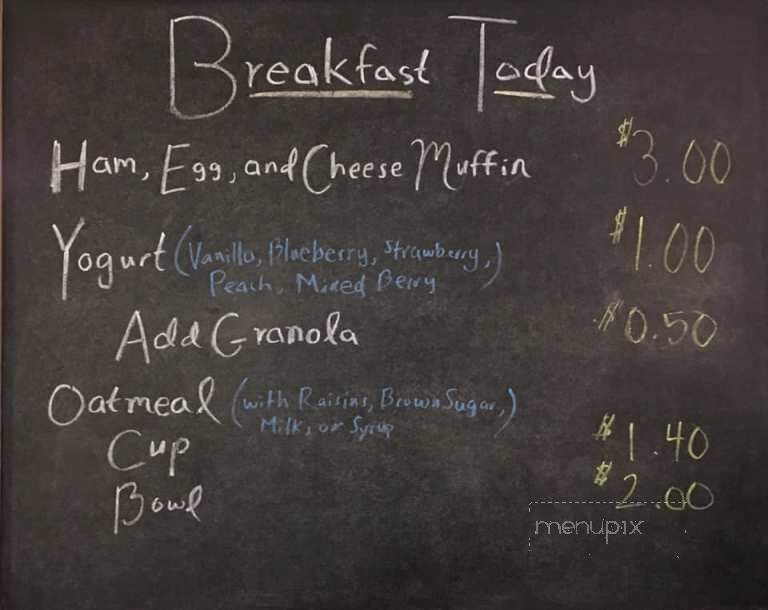 Breakfast Today
Ham, Egg, and Cheese Muffin $3.00
Yogurt (Vanilla, Blueberry, Strawberry,) $1.00
Peach, Mixed Berry
Add Granola $0.50
Oatmeal (with Raisins, Brown Sugar,)
Milk, or Syrup
Cup $1.40
Bowl $2.00
menupix